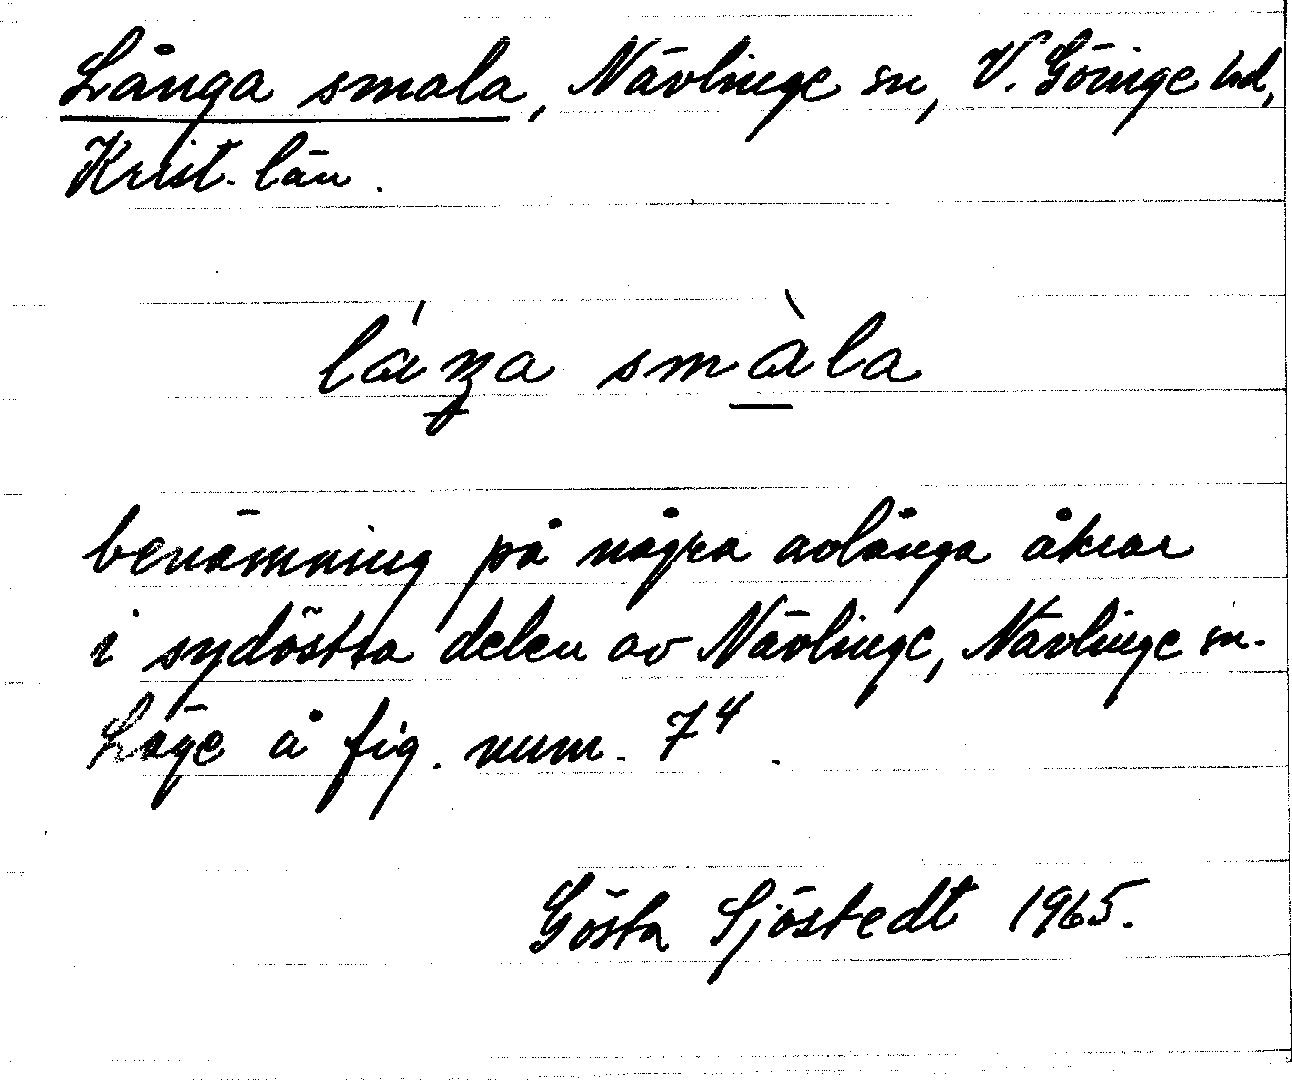 Långa smala, Nävlinge sn, V. Göinge hd,
Krist. län.
smàla
benämning på några avlånga åkrar
i sydöstra delen av Nävlinge, Nävlinge sn.
Läge å fig. num. 7⁴.
Gösta Sjöstedt 1965.